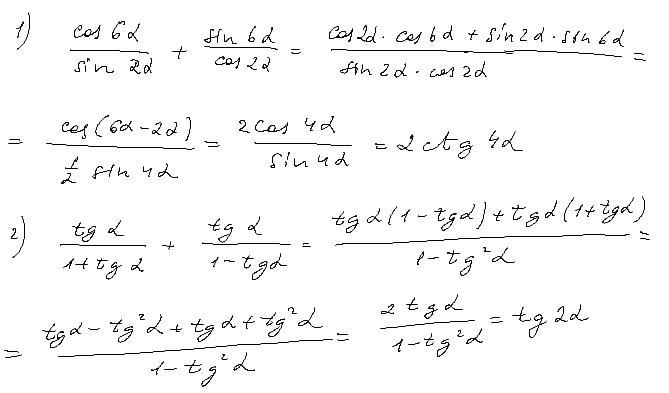 1) cos 6α / sin 2α + sin 6α / cos 2α = cos 2α · cos 6α + sin 2α · sin 6α / sin 2α · cos 2α =
= cos(6α - 2α) / ½ sin 4α = 2 cos 4α / sin 4α = 2 ctg 4α
2) tg α / 1 + tg α + tg α / 1 - tg α = tg α (1 - tg α) + tg α (1 + tg α) / 1 - tg² α =
= tg α - tg² α + tg α + tg² α / 1 - tg² α = 2 tg α / 1 - tg² α = tg 2α